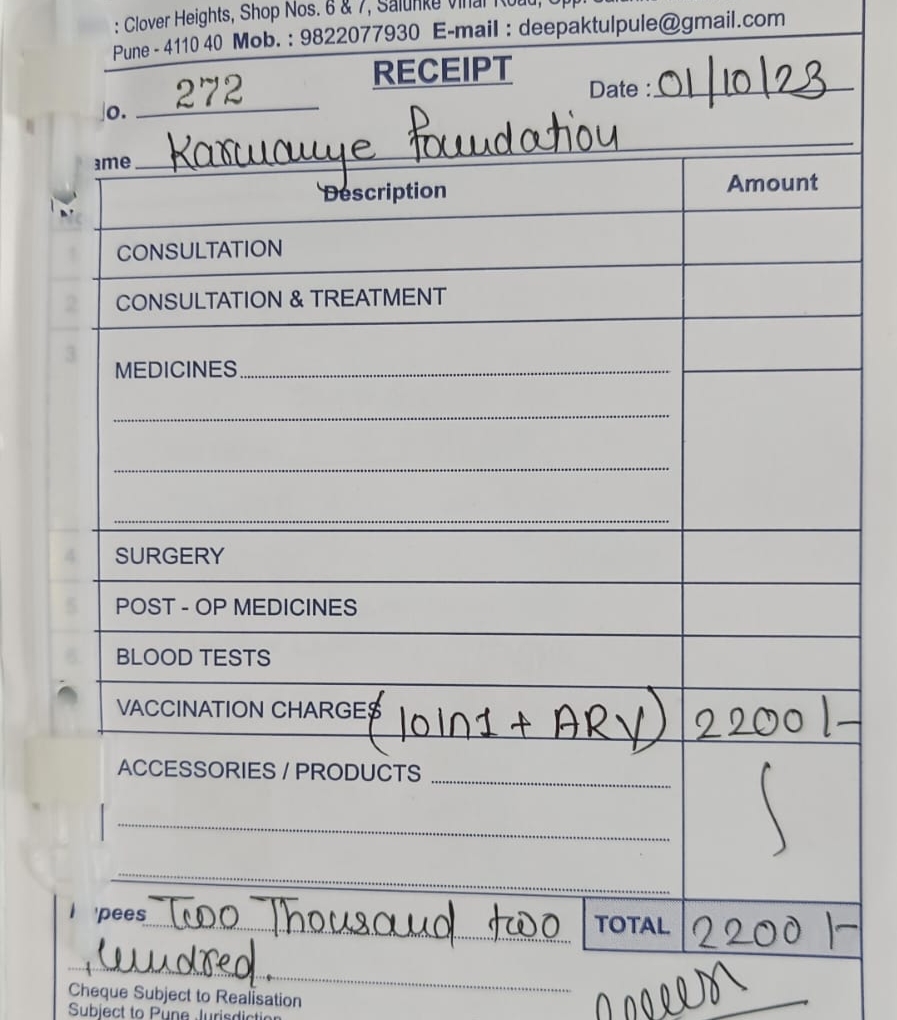 : Clover Heights, Shop Nos. 6 & 7, Salunke Vihar Road, Opp.
Pune - 4110 40 Mob. : 9822077930 E-mail : deepaktulpule@gmail.com
RECEIPT
o. 272 Date : 01/10/23
ame foundation
Description Amount
1 CONSULTATION
2 CONSULTATION & TREATMENT
3 MEDICINES
4 SURGERY
5 POST - OP MEDICINES
6 BLOOD TESTS
VACCINATION CHARGES (10in1 + ARV) 2200/-
ACCESSORIES / PRODUCTS
pees Two Thousand two TOTAL 2200/-
hundred.
Cheque Subject to Realisation
Subject to Pune Jurisdiction